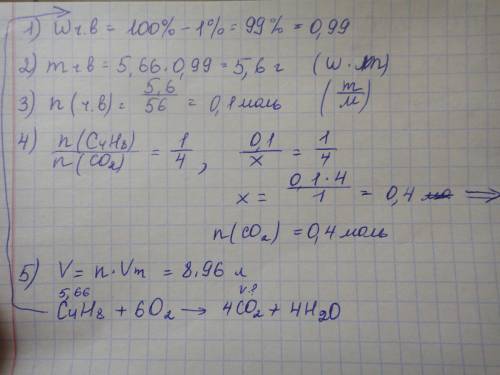 1) Wч.в = 100% - 1% = 99% = 0,99
2) mч.в = 5,66 · 0,99 = 5,6 г (w · m)
3) n(ч.в) = 5,6/56 = 0,1 моль (m/M)
4) n(C4H8)/n(CO2) = 1/4, 0,1/x = 1/4
x = 0,1·4/1 = 0,4 ⟹
n(CO2) = 0,4 моль
5) V = n · Vm = 8,96 л
5,66 V-?
C4H8 + 6O2 → 4CO2 + 4H2O